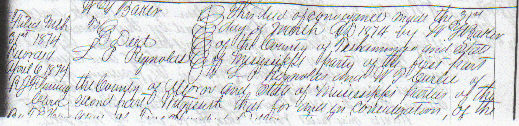 W H Baker This deed of conveyance made the 31st
Filed March To day of March AD 1874 by W H Baker
31st 1874 Dent of the County of Tishomingo and State
Recorded Reynolds of Mississippi party of the first part
April 6 1874 Reynolds and W P Curlee of
the County of Alcorn and State of Mississippi parties of the
second part Witnesseth that for and in consideration of the